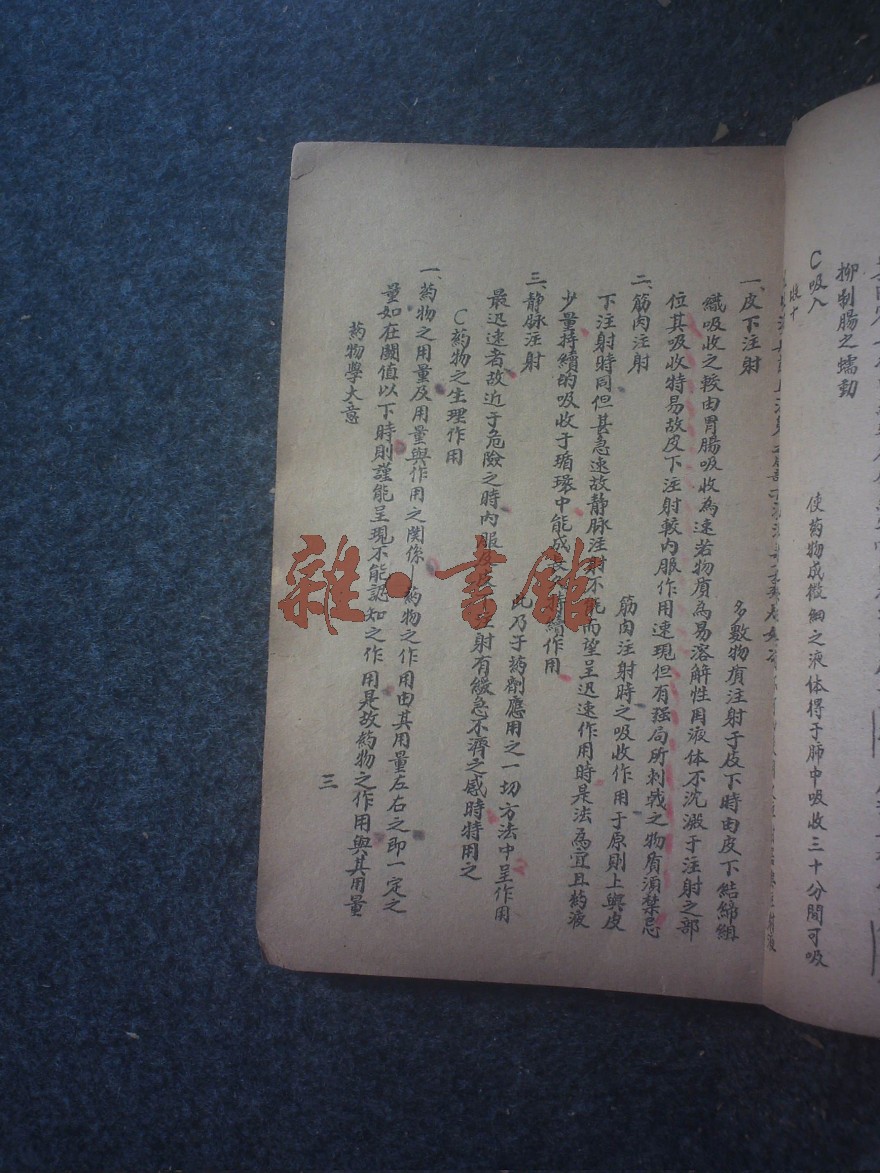 抑制腸之蠕動
C吸入　使药物成微細之液体得于肺中吸收三十分間可吸
收
一、皮下注射　多數物質注射于皮下時由皮下結締組
織吸收之較由胃腸吸收為速若物質為易溶解性用液体不沈澱于注射之部
位其吸收特易故皮下注射較内服作用速現但有强局所刺戟之物質須禁忌
二、筋肉注射　筋肉注射時之吸收作用于原則上與皮
下注射時同但甚急速故静脉注射不能而望呈迅速作用時是法為宜且药液
少量持續的吸收于循環中能成持續作用
三、静脉注射　此乃于药劑應用之一切方法中呈作用
最迅速者故近于危險之時内服及皮下注射有緩急不濟之感時特用之
C药物之生理作用
一、药物之用量及用量與作用之関係—药物之作用由其用量左右之即一定之
量如在閾值以下時則謹能呈現不能認知之作用是故药物之作用與其用量
药物學大意　三
雜·書館